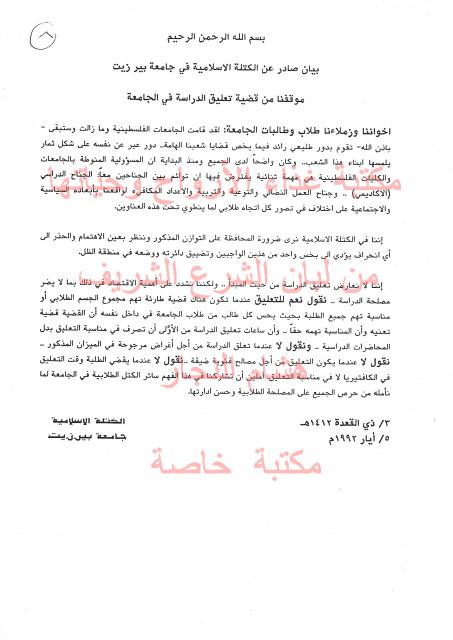 بسم الله الرحمن الرحيم
بيان صادر عن الكتلة الاسلامية في جامعة بير زيت
موقفنا من قضية تعليق الدراسة في الجامعة
اخواننا وزملاءنا طلاب وطالبات الجامعة: لقد قامت الجامعات الفلسطينية وما زالت وستبقى -
باذن الله- تقوم بدور طليعي رائد فيما يخص قضايا شعبنا الهامة.. دور عبر عن نفسه على شكل ثمار
يلمسها ابناء هذا الشعب.. وكان واضحاً لدى الجميع ومنذ البداية ان المسؤولية المنوطة بالجامعات
والكليات الفلسطينية هي مهمة ثنائية يفترض فيها ان توائم بين الجناحين معاً: الجناح الدراسي
(الاكاديمي) .. وجناح العمل النضالي والتوعية والتربية والاعداد المكافئ لواقعنا بأبعاده السياسية
والاجتماعية على اختلاف في تصور كل اتجاه طلابي لما ينطوي تحت هذه العناوين.
إننا في الكتلة الاسلامية نرى ضرورة المحافظة على التوازن المذكور وننظر بعين الاهتمام والحذر الى
أي انحراف يؤدي الى بخس واحد من هذين الواجبين وتضييق دائرته ووضعه في منطقة الظل.
إننا لا نعارض تعليق الدراسة من حيث المبدأ .. ولكننا نشدد على أهمية الاقتصاد في ذلك بما لا يضر
مصلحة الدراسة .. نقول نعم للتعليق عندما تكون هناك قضية طارئة تهم مجموع الجسم الطلابي أو
مناسبة تهم جميع الطلبة بحيث يحس كل طالب من طلاب الجامعة في داخل نفسه أن القضية قضية
تعنيه وأن المناسبة تهمه حقاً.. وأن ساعات تعليق الدراسة من الأولى أن تصرف في مناسبة التعليق بدل
المحاضرات الدراسية .. ونقول لا عندما تعلق الدراسة من أجل أغراض مرجوحة في الميزان المذكور ..
نقول لا عندما يكون التعليق من أجل مصالح فئوية ضيقة .. نقول لا عندما يقضي الطلبة وقت التعليق
في الكافتيريا لا في مناسبة التعليق. آملين أن تشاركنا في هذا الفهم سائر الكتل الطلابية في الجامعة لما
نأمله من حرص الجميع على المصلحة الطلابية وحسن ادارتها.
٣/ ذي القعدة ١٤١٢هـ
الكتلة الاسلامية
٥/ أيار ١٩٩٢م
جامعة بير زيت
مكتبة غذاء الارواح وحياتها
من لبان الشرع الشريف
هشام النجار
مكتبة خاصة